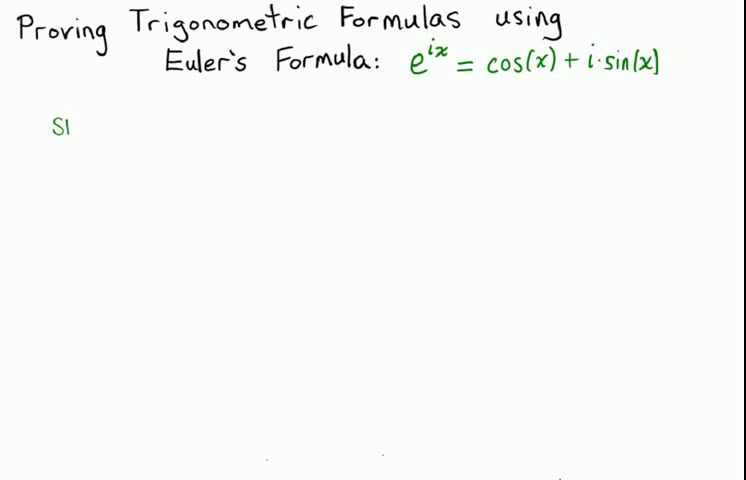 Proving Trigonometric Formulas using
Euler's Formula: e^{ix} = cos(x) + i·sin(x)
SI